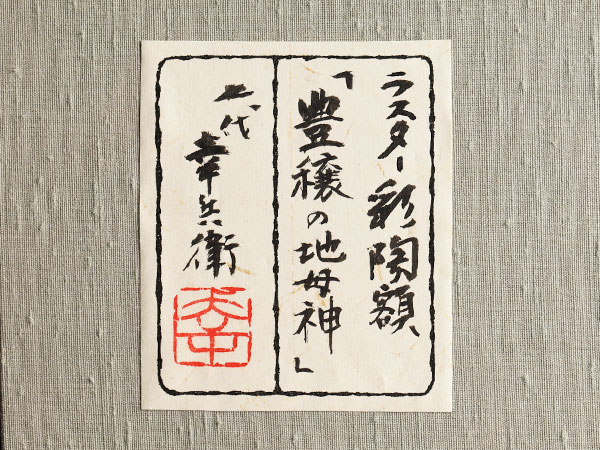 ラスター彩陶額
「豊穣の地母神」
七代
幸兵衛
幸